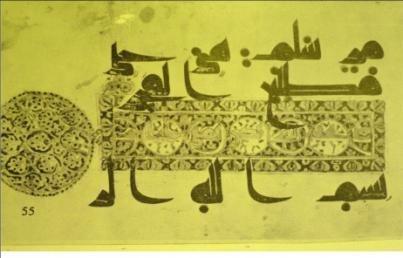 مر سلم هي حتى
مطلع الفجر
بسم الله الر
55